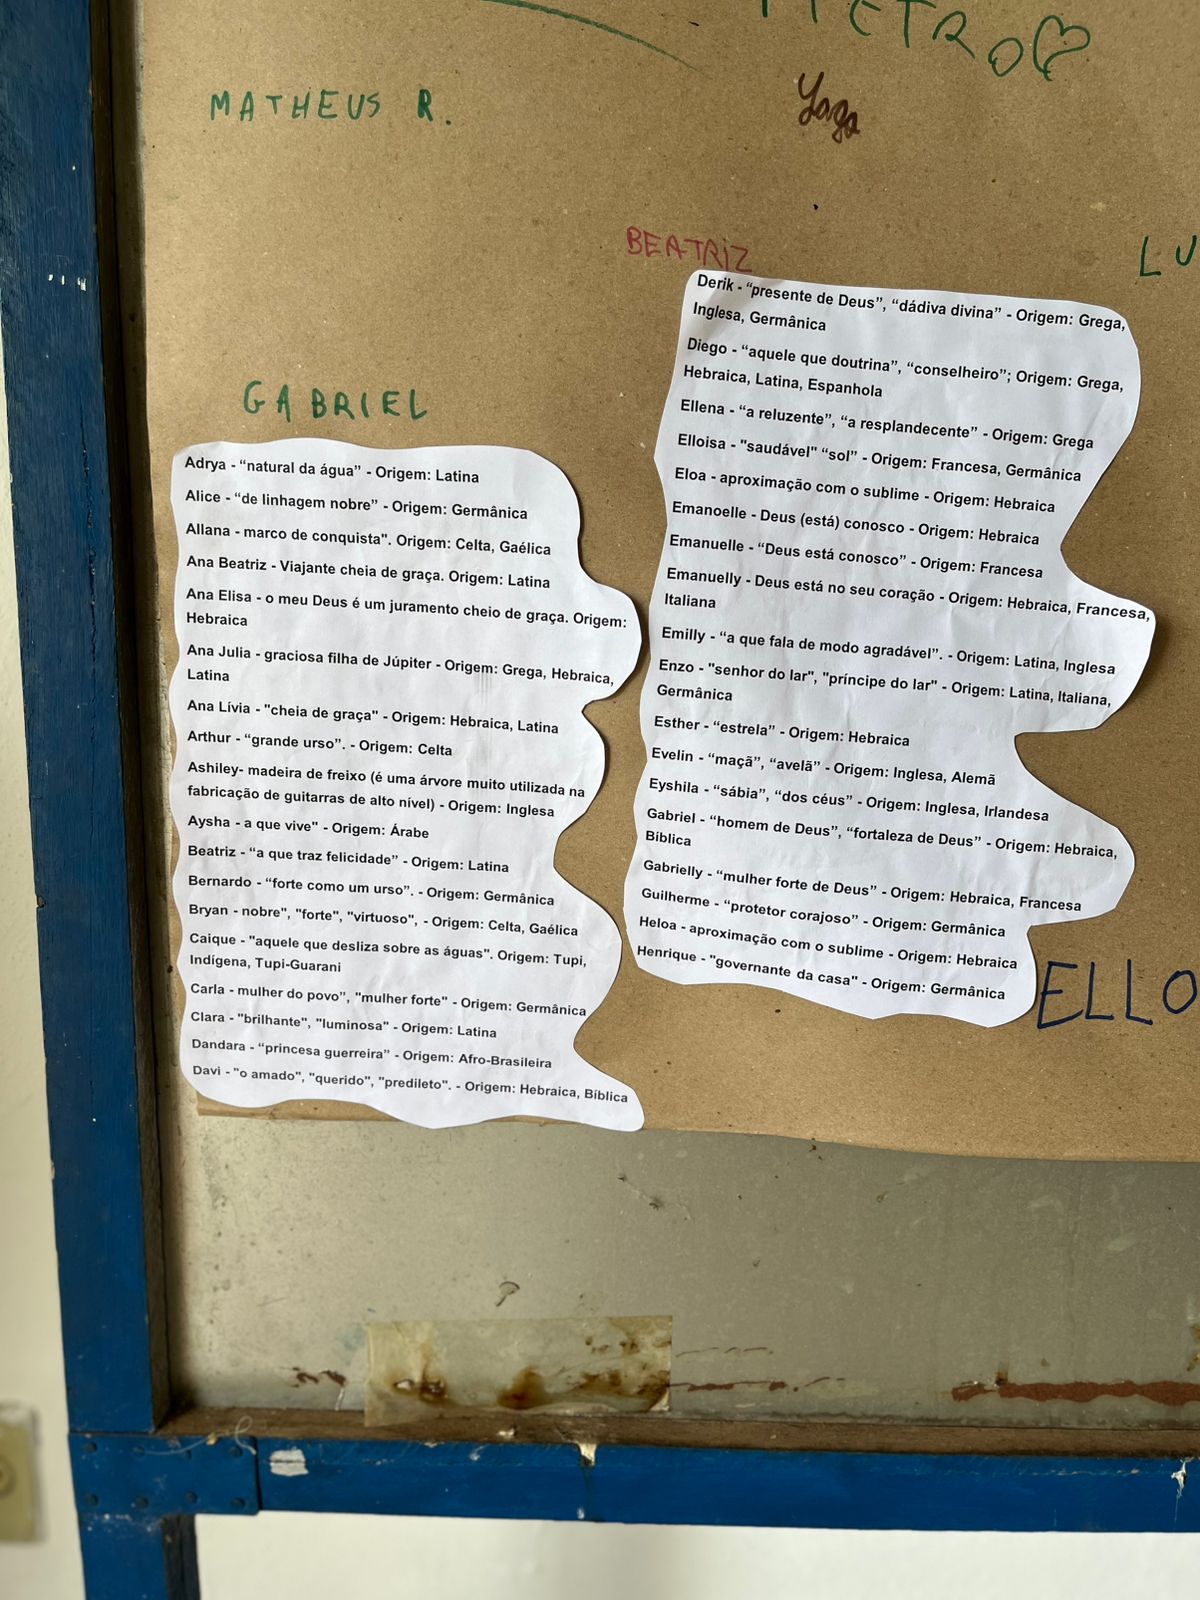 PIETRO
MATHEUS R.
Yaga
BEATRIZ
LU
GABRIEL
Adrya - “natural da água” - Origem: Latina
Alice - “de linhagem nobre” - Origem: Germânica
Allana - marco de conquista". Origem: Celta, Gaélica
Ana Beatriz - Viajante cheia de graça. Origem: Latina
Ana Elisa - o meu Deus é um juramento cheio de graça. Origem:
Hebraica
Ana Julia - graciosa filha de Júpiter - Origem: Grega, Hebraica,
Latina
Ana Lívia - "cheia de graça" - Origem: Hebraica, Latina
Arthur - “grande urso”. - Origem: Celta
Ashiley- madeira de freixo (é uma árvore muito utilizada na
fabricação de guitarras de alto nível) - Origem: Inglesa
Aysha - a que vive" - Origem: Árabe
Beatriz - “a que traz felicidade” - Origem: Latina
Bernardo - “forte como um urso”. - Origem: Germânica
Bryan - nobre", "forte", "virtuoso", - Origem: Celta, Gaélica
Caique - "aquele que desliza sobre as águas". Origem: Tupi,
Indígena, Tupi-Guarani
Carla - mulher do povo”, "mulher forte" - Origem: Germânica
Clara - "brilhante", "luminosa" - Origem: Latina
Dandara - “princesa guerreira” - Origem: Afro-Brasileira
Davi - "o amado", "querido", "predileto". - Origem: Hebraica, Bíblica
Derik - “presente de Deus”, “dádiva divina” - Origem: Grega,
Inglesa, Germânica
Diego - “aquele que doutrina”, “conselheiro”; Origem: Grega,
Hebraica, Latina, Espanhola
Ellena - “a reluzente”, “a resplandecente” - Origem: Grega
Elloisa - "saudável" “sol” - Origem: Francesa, Germânica
Eloa - aproximação com o sublime - Origem: Hebraica
Emanoelle - Deus (está) conosco - Origem: Hebraica
Emanuelle - “Deus está conosco” - Origem: Francesa
Emanuelly - Deus está no seu coração - Origem: Hebraica, Francesa,
Italiana
Emilly - “a que fala de modo agradável”. - Origem: Latina, Inglesa
Enzo - "senhor do lar", "príncipe do lar" - Origem: Latina, Italiana,
Germânica
Esther - “estrela” - Origem: Hebraica
Evelin - “maçã”, “avelã” - Origem: Inglesa, Alemã
Eyshila - “sábia”, “dos céus” - Origem: Inglesa, Irlandesa
Gabriel - “homem de Deus”, “fortaleza de Deus” - Origem: Hebraica,
Bíblica
Gabrielly - “mulher forte de Deus” - Origem: Hebraica, Francesa
Guilherme - “protetor corajoso” - Origem: Germânica
Heloa - aproximação com o sublime - Origem: Hebraica
Henrique - "governante da casa" - Origem: Germânica
ELLO